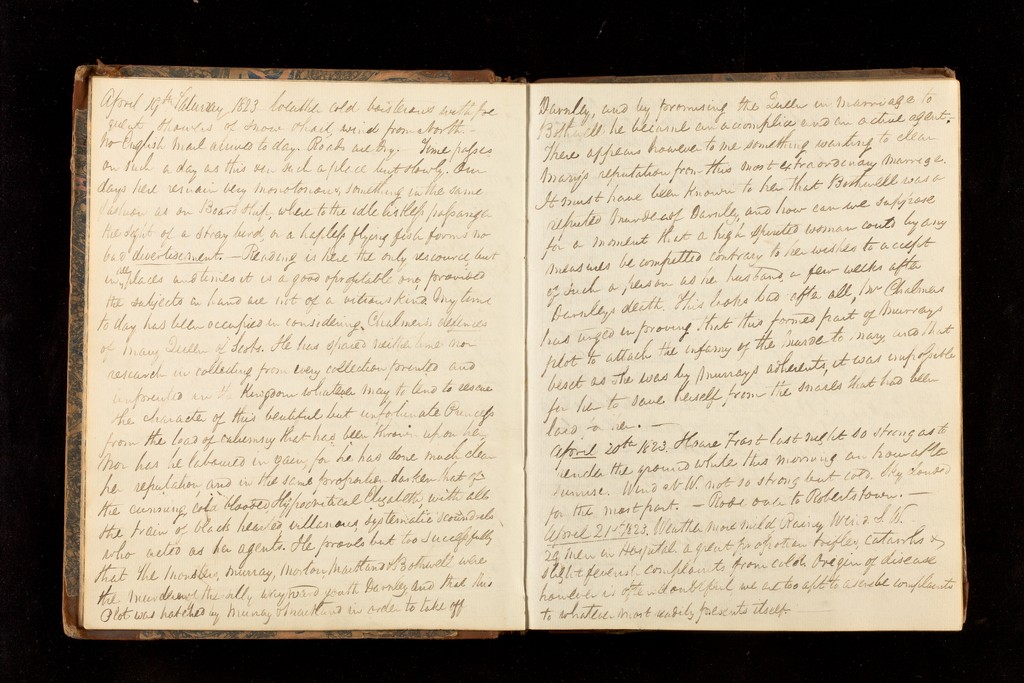 April 19th Saturday 1823 Weather cold boisterous with fre
quent showers of Snow & hail, wind from North. —
No English Mail arrived to day. Roads are dry. Time passes
on such a day as this in such a place but slowly. Our
days here remain very monotonous, something in the same
fashion as on Board Ship, where to the idle listless passenger
the sight of a stray bird, or a hapless flying fish forms no
bad divertisement. — Reading is here the only resource, but
in all places and times it is a good & profitable one provided
the subjects in hand are not of a vicious kind. My time
to day has been occupied in considering Chalmers's defence
of Mary Queen of Scots. He has spared neither time nor
research in collecting from every collection printed and
unprinted in the Kingdom whatever may to tend to rescue
the character of this beautiful but unfortunate Princess
from the load of calumny that has been thrown upon her
Nor has he laboured in vain, for he has done much clear
her reputation and in the same proportion darken that of
the cunning, cold blooded Hypocritical Elizabeth with all
the train of black hearted villanous, systematic scoundrels
who acted as her agents. He proves but too successfully
that the Monsters, Murray, Morton, Maitland & Bothwell were
the murderers of the silly wayward youth Darnley and that this
Plot was hatched by Murray & Maitland in order to take off
Darnley, and by promising the Queen in marriage to
Bothwell he became an accomplice and an active agent.
There appears however to me something wanting to clear
Mary's reputation from this most extraordinary marriage.
It must have been known to her that Bothwell was a
reputed Murderer of Darnley, and how can we suppose
for a moment that a high spirited woman could by any
measures be compelled contrary to her wishes to accept
of such a person as her husband a few weeks after
Darnley's death. This looks bad after all, Mr Chalmers
has urged in proving that this formed part of Murray's
plot to attach the infamy of the Murder to Mary, and that
beset as she was by Murray's adherents, it was impossible
for her to save herself from the snares that had been
laid for her. —
April 20th 1823. Hoare Frost last night so strong as to
render the ground white this morning an hour after
Sunrise. Wind at W. not so strong but cold. Sky Loaded
for the most part. — Rode over to Robertstown. —
April 21st 1823. Weather more mild Rainy Wind S.W. —
29 Men in Hospital a great proportion trifles, Catarrhs &
slight feverish complaints from cold. Origin of disease
however is often doubtful we are too apt to ascribe complaints
to whatever most readily presents itself. —